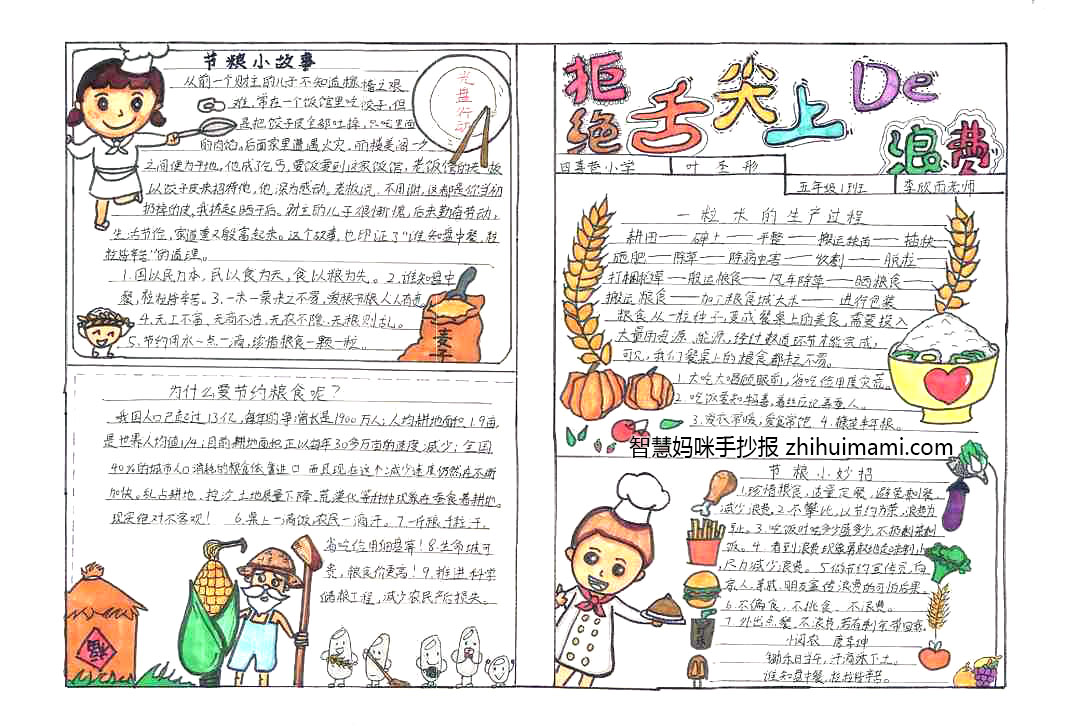 节粮小故事
从前一个财主的儿子不知道粮食之艰
难，常在一个饭馆里吃饺子，但
是把饺子皮全部吐掉，只吃里面
的肉馅。后面家里遭遇火灾，
之间便为平地。他成了乞丐，要饭要到这家饭馆，老饭馆的老板
以饺子皮来招待他，他深为感动。老板说，不用谢，这都是你当初
扔掉的皮，我拣起晒干后。财主的儿子很惭愧，后来勤奋劳动，
生活节俭，家道重又殷富起来。这个故事，也印证了“谁知盘中餐，粒
粒皆辛苦”的道理。
1.国以民为本，民以食为天，食以粮为先。2.谁知盘中
餐，粒粒皆辛苦。3.一米一粟来之不易，爱粮节粮人人有责
4.无工不富、无商不活、无农不稳、无粮则乱。
5.节约用水一点一滴，珍惜粮食一颗一粒。
光盘行动
麦子
为什么要节约粮食呢？
我国人口已超过13亿，每年的净增长是1900万人；人均耕地面积1.9亩，
是世界人均值1/4；目前耕地面积正以每年30多万亩的速度减少；全国
40%的城市人口消耗的粮食依靠进口 而且现在这个减少速度仍然在不断
加快。乱占耕地、挖沙、土地质量下降、荒漠化等种种现象在蚕食着耕地，
现实绝对不容观！ 6.桌上一滴饭农民一滴汗。7.一斤粮千粒汗，
省吃俭用细盘算！8.生命诚可
贵，粮食价更高！9.推进科学
储粮工程，减少农民产后损失。
福
拒绝舌尖上De浪费
四美巷小学 叶圣彤
五年级1班 李欣雨老师
一粒米的生产过程
耕田——碎土——平整——搬运秧苗——插秧
施肥——除草——除病虫害——收割——脱粒
打捆秕浑——搬运粮食——风车除草——晒粮食
搬运粮食——加工粮食成大米——进行包装
粮食从一粒种子，变成餐桌上的美食，需要投入
大量的资源、能源，经过数道环节才能完成，
可见，我们餐桌上的粮食都来之不易。
1.大吃大喝顾眼前，省吃俭用度灾荒。
3.发衣常暖，爱食常饱
智慧妈咪手抄报 zhihuimami.com
节粮小妙招
1.珍惜粮食，适量定餐，避免剩餐，
减少浪费。2.不攀比，以节约为荣，浪费为
耻。3.吃饭时吃多少盛多少，不扔剩菜剩
饭。4.看到浪费现象勇敢地起来制止，
尽力减少浪费。5.做节约宣传员，向
家人、亲戚、朋友宣传浪费的可怕后果。
6.不偏食，不挑食，不浪费。
7.外出点餐，不浪费，若有剩余带回家。
小悯农 唐李坤
锄禾日当午，汗滴禾下土。
谁知盘中餐，粒粒皆辛苦。